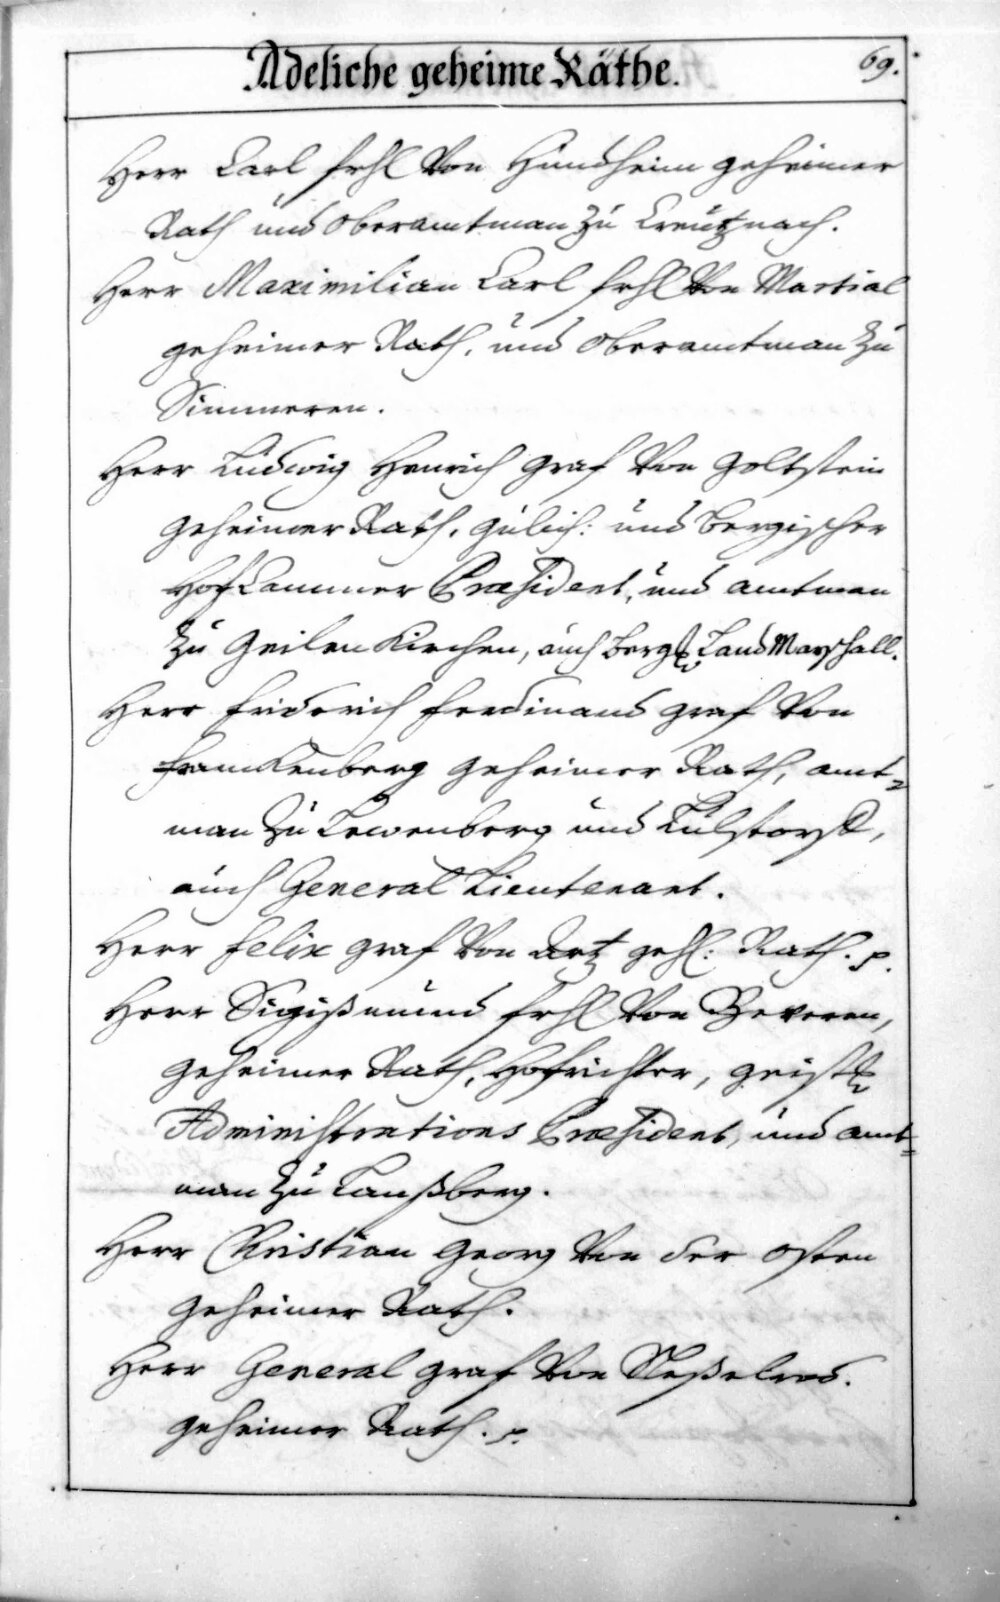 Adeliche geheime Räthe.
69.
Herr Carl frhl Von Hundheim geheimer
Rath und oberamtman zu Creutznach.
Herr Maximilian Carl frhl Von Martial
geheimer Rath, und oberamtman zu
Simmeren.
Herr Ludwig Henrich graf Von goltstein
geheimer Rath, gülich: und bergischer
HofCammer Præsident, und amtman
zu Geilen Kirchen, auch berg. Land Marschall.
Herr friderich ferdinand graf Von
franckenberg geheimer Rath, amt=
man zu Lewenberg und Lülstorff,
auch General Lieutenant.
Herr felix graf Von Artz gehl: Rath. p.
Herr Sigißmund frhl Von Beveren,
geheimer Rath, Hofrichter, geistl.
Administrations Præsident, und amt=
man zu Lanßberg.
Herr Christian Georg Von der osten
geheimer Rath.
Herr General graf Von Neßelrod.
geheimer Rath. p.